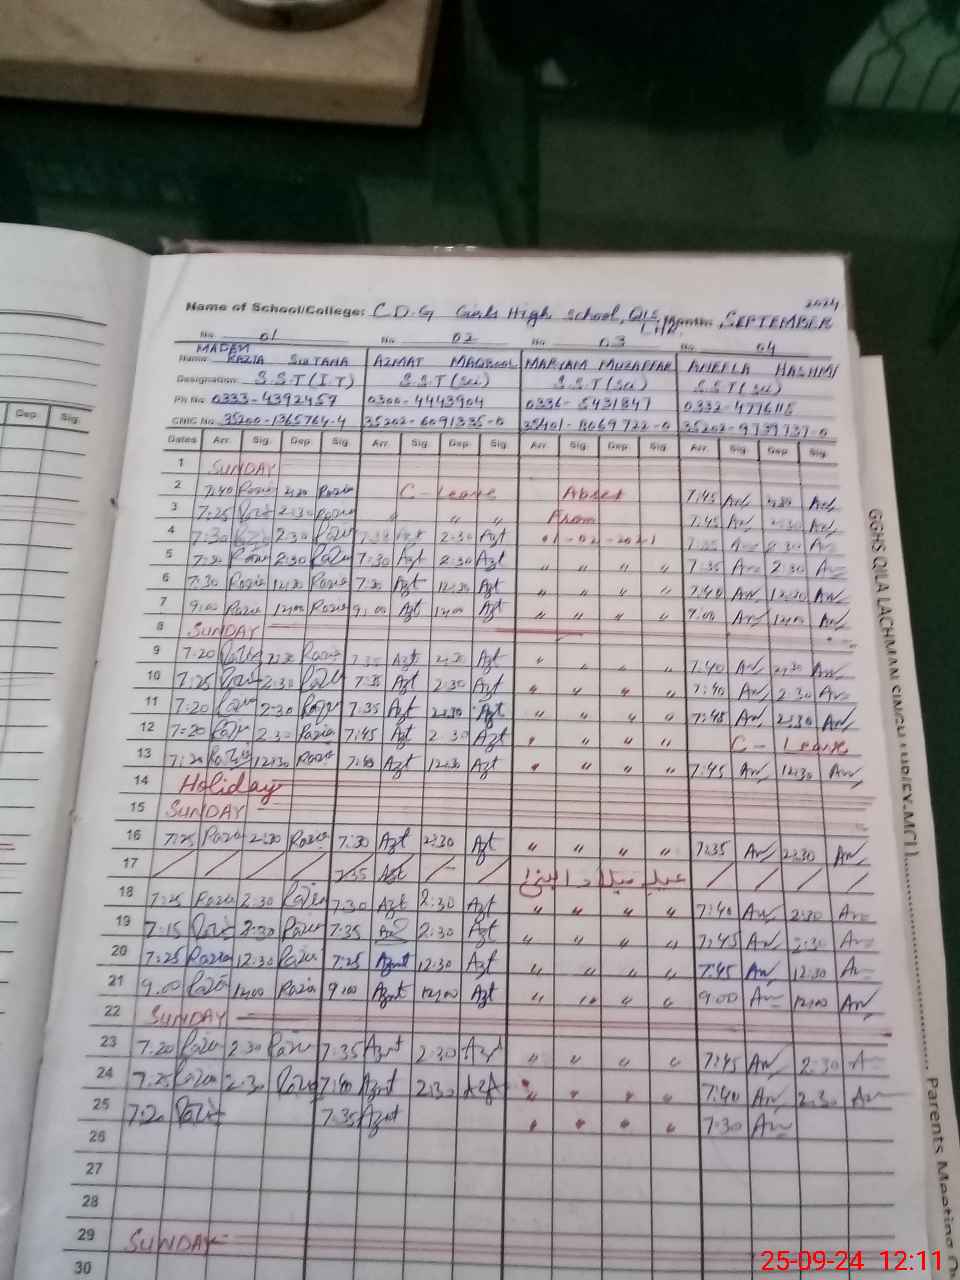 2024
Name of School/College: C.D.G Girls High School, QLS, LHR Month: SEPTEMBER
No. 01 No. 02 No. 03 No. 04
MADAM
Name: RAZIA SULTANA AZMAT MAQBOOL MARIAM MUZAFFAR ANEELA HASHMI
Designation: S.S.T (I.T) S.S.T (Sci) S.S.T (Sci) S.S.T (Sci)
Ph No. 0333-4392457 0300-4443904 0336-5431847 0332-4776115
CNIC No. 35200-1365764-4 35202-6091335-0
Dates Arr. Sig. Dep. Sig. Arr. Sig. Dep. Sig. Arr. Sig. Dep. Sig. Arr. Sig. Dep. Sig.
1 SUNDAY
2 7:40 Razia 2:30 Razia C-Leave Absent 7:45 An 2:30 An
3 7:25 Razia 2:30 Razia " " " From 7:45 An 2:30 An
4 7:30 2:30 Razia Azt 2:30 Azt 01-02-2021 An 2:30 An
5 7:20 Razia 2:30 Razia 7:30 Azt 2:30 Azt " " " " 7:35 An 2:30 An
6 7:30 Razia 12:30 Razia 7:30 Azt 12:30 Azt " " " " 7:40 An 12:30 An
7 9:00 Razia 12:00 Razia 9:00 Azt 12:00 Azt " " " " 9:00 An 12:00 An
8 SUNDAY
9 7:20 Razia 2:30 Razia 7:35 Azt 2:30 Azt " " " " 7:40 An 2:30 An
10 7:25 Razia 2:30 Razia 7:35 Azt 2:30 Azt " " " " 7:40 An 2:30 An
11 7:20 Razia 2:30 Razia 7:35 Azt 2:30 Azt " " " " 7:45 An 2:30 An
12 7:20 Razia 2:30 Razia 7:45 Azt 2:30 Azt " " " " C-Leave
13 7:20 Razia 12:30 Razia 7:40 Azt 12:30 Azt " " " " 7:45 An 12:30 An
14 Holiday
15 SUNDAY
16 7:25 Razia 2:30 Razia 7:30 Azt 2:30 Azt " " " " 7:35 An 2:30 An
17 / / / / 7:35 Azt / / عید میلاد النبیؐ / / / /
18 7:25 Razia 2:30 Razia 7:30 Azt 2:30 Azt " " " " 7:40 An 2:30 An
19 7:15 Razia 2:30 Razia 7:35 Azt 2:30 Azt " " " " 7:45 An 2:30 An
20 7:25 Razia 12:30 Razia 7:25 Azmt 12:30 Azt " " " " 7:45 An 12:30 An
21 9:00 Razia 12:00 Razia 9:00 Azmt 12:00 Azt " " " " 9:00 An 12:00 An
22 SUNDAY
23 7:20 Razia 2:30 Razia 7:35 Azmt 2:30 Azt " " " " 7:45 An 2:30 An
24 7:25 Razia 2:30 Razia 7:40 Azmt 2:30 Azt " " " " 7:40 An 2:30 An
25 7:20 Razia 7:35 Azmt " " " " 7:30 An
26
27
28
29 SUNDAY
30
Dep. Sig.
GGHS QILA LACHMAN SINGH
Parents Meeting
25-09-24 12:11